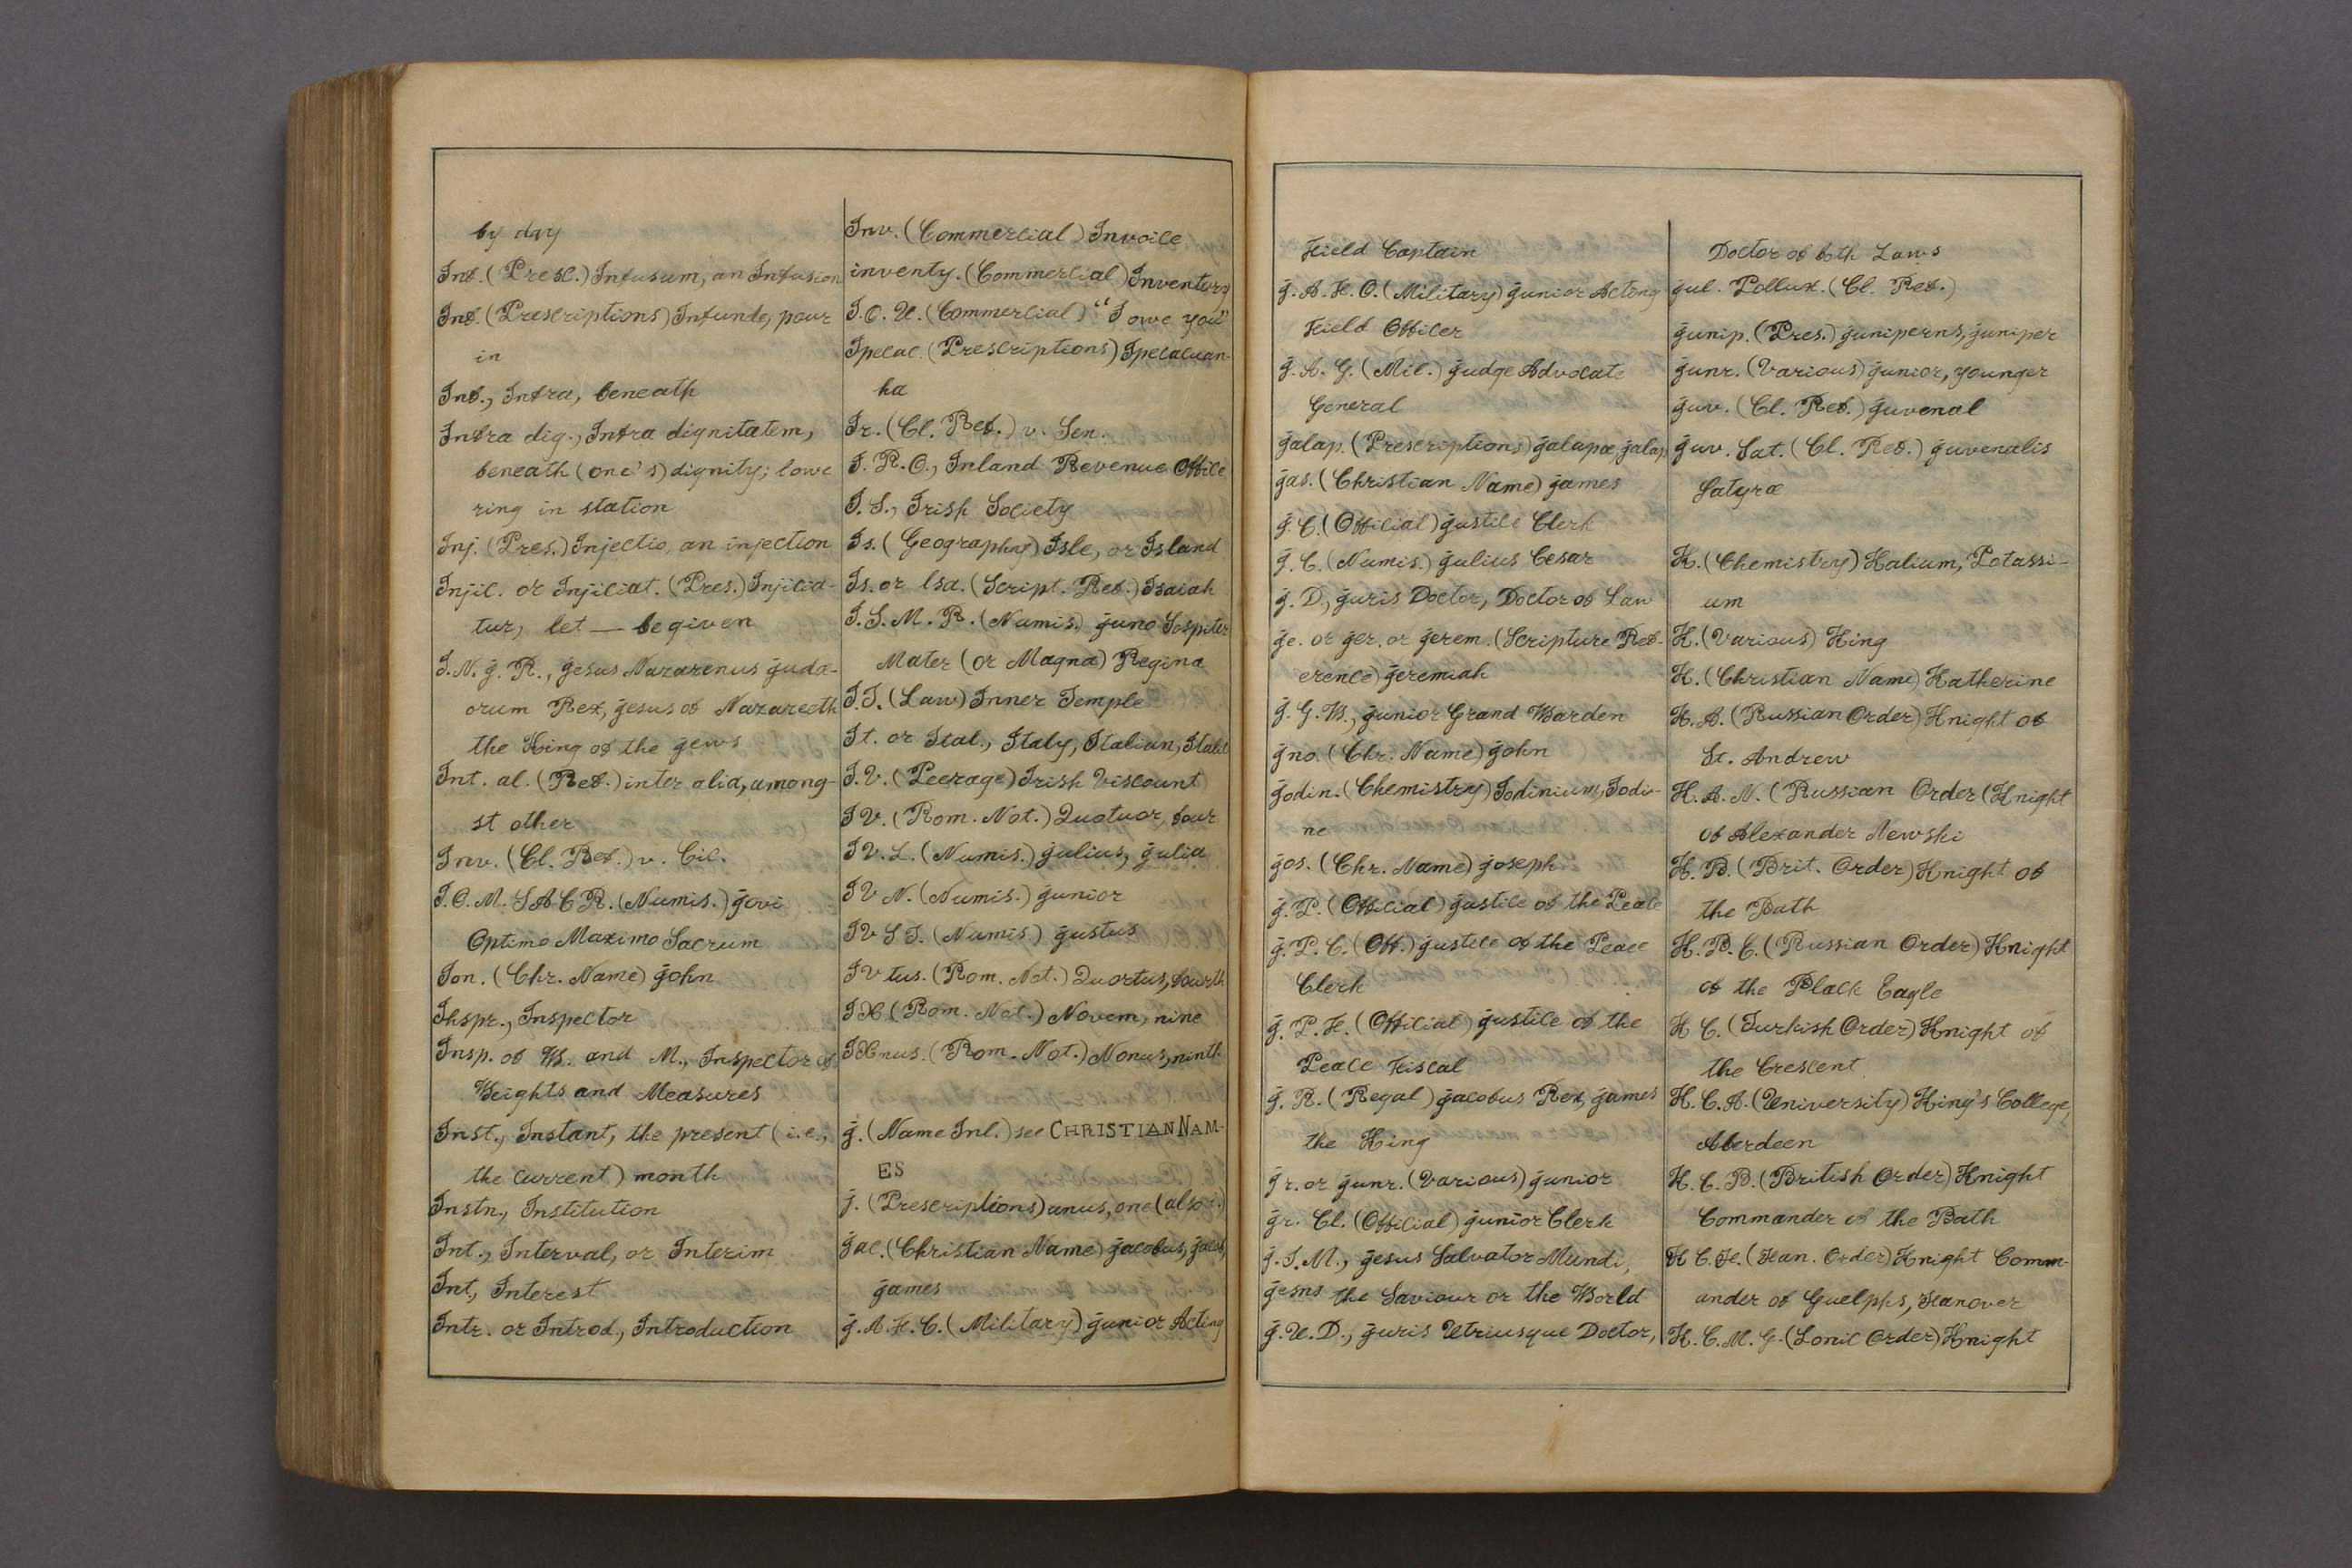 by day
Inf. (Presc.) Infusum, an Infusion
Inf. (Prescriptions) Infunde, pour
in
Inf., Infra, beneath
Infra dig., Infra dignitatem,
beneath (one's) dignity; lowe
ring in station
Inj. (Pres.) Injectio, an injection
Injic. or Injiciat. (Pres.) Injicia-
tur, let — be given
I.N.J.R., Jesus Nazarenus Juda-
orum Rex, Jesus of Nazareeth
the King of the Jews
Int. al. (Ref.) inter alia, among-
st other
Inv. (Cl. Ref.) v. Cic.
I.O.M. SACR. (Numis.) Jovi
Optimo Maximo Sacrum
Ion. (Chr. Name) John
Ihspr., Inspector
Insp. of W. and M., Inspector of
Weights and Measures
Inst., Instant, the present (i.e.,
the current) month
Instn., Institution
Int., Interval, or Interim
Int., Interest
Intr. or Introd., Introduction
Inv. (Commercial) Invoice
inventy. (Commercial) Inventory
I.O.U. (Commercial) "I owe you"
Ipecac. (Prescriptions) Ipecacuan-
ha
Ir. (Cl. Ref.) v. Sen.
I.R.O., Inland Revenue Office
I.S., Irish Society
Is. (Geography) Isle, or Island
Is. or lsa. (Script. Ref.) Isaiah
I.S.M.R. (Numis.) Juno Sospiter
Mater (or Magna) Regina
I.T. (Law) Inner Temple
It. or Ital., Italy, Italian, Italic
I.V. (Peerage) Irish Viscount
IV. (Rom. Not.) Quatuor, four
IV.L. (Numis.) Julius, Julia
IV N. (Numis.) Junior
IV S T. (Numis.) Justus
IV tus. (Rom. Not.) Quartus, fourth
IX (Rom. Not.) Novem, nine
IXnus. (Rom. Not.) Nonus, ninth
J. (Name Inl.) see CHRISTIAN NAM-
ES
j. (Prescriptions) unus, one (also i.)
Jac. (Christian Name) Jacobus, Jacob,
James
J.A.F.C. (Military) Junior Acting
Field Captain
J.A.F.O. (Military) Junior Acting
Field Officer
J.A.G. (Mil.) Judge Advocate
General
Jalap. (Prescriptions) Jalapæ, Jalap
Jas. (Christian Name) James
J.C. (Official) Justice Clerk
J.C. (Numis.) Julius Cesar
J.D., Juris Doctor, Doctor of Law
Je. or Jer. or Jerem. (Scripture Ref-
erence) Jeremiah
J.G.W., Junior Grand Warden
Jno. (Chr. Name) John
Jodin. (Chemistry) Iodinium, Iodi-
ne
Jos. (Chr. Name) Joseph
J.P. (Official) Justice of the Peace
J.P.C. (Off.) Justice of the Peace
Clerk
J.P.F. (Official) Justice of the
Peace Fiscal
J.R. (Regal) Jacobus Rex, James
the King
Jr. or Junr. (Various) Junior
Jr. Cl. (Official) Junior Clerk
J.S.M., Jesus Salvator Mundi,
Jesns the Saviour or the World
J.U.D., Juris Utriusque Doctor,
Doctor of both Laws
Jul. Pollux. (Cl. Ref.)
Junip. (Pres.) Juniperns, Juniper
Junr. (Various) Junior, younger
Juv. (Cl. Ref.) Juvenal
Juv. Sat. (Cl. Ref.) Juvenalis
Satyræ
K. (Chemistry) Kalium, Potassi-
um
K. (Various) King
K. (Christian Name) Katherine
K.A. (Russian Order) Knight of
St. Andrew
K.A.N. (Russian Order (Knight
of Alexander Newski
K.B. (Brit. Order) Knight of
the Bath
K.B.E. (Russian Order) Knight
of the Black Eagle
K C. (Turkish Order) Knight of
the Crescent
K.C.A. (University) King's College,
Aberdeen
K.C.B. (British Order) Knight
Commander of the Bath
K C.H. (Han. Order) Knight Comm-
ander of Guelphs, Hanover
K.C.M.G. (Ionic Order) Knight